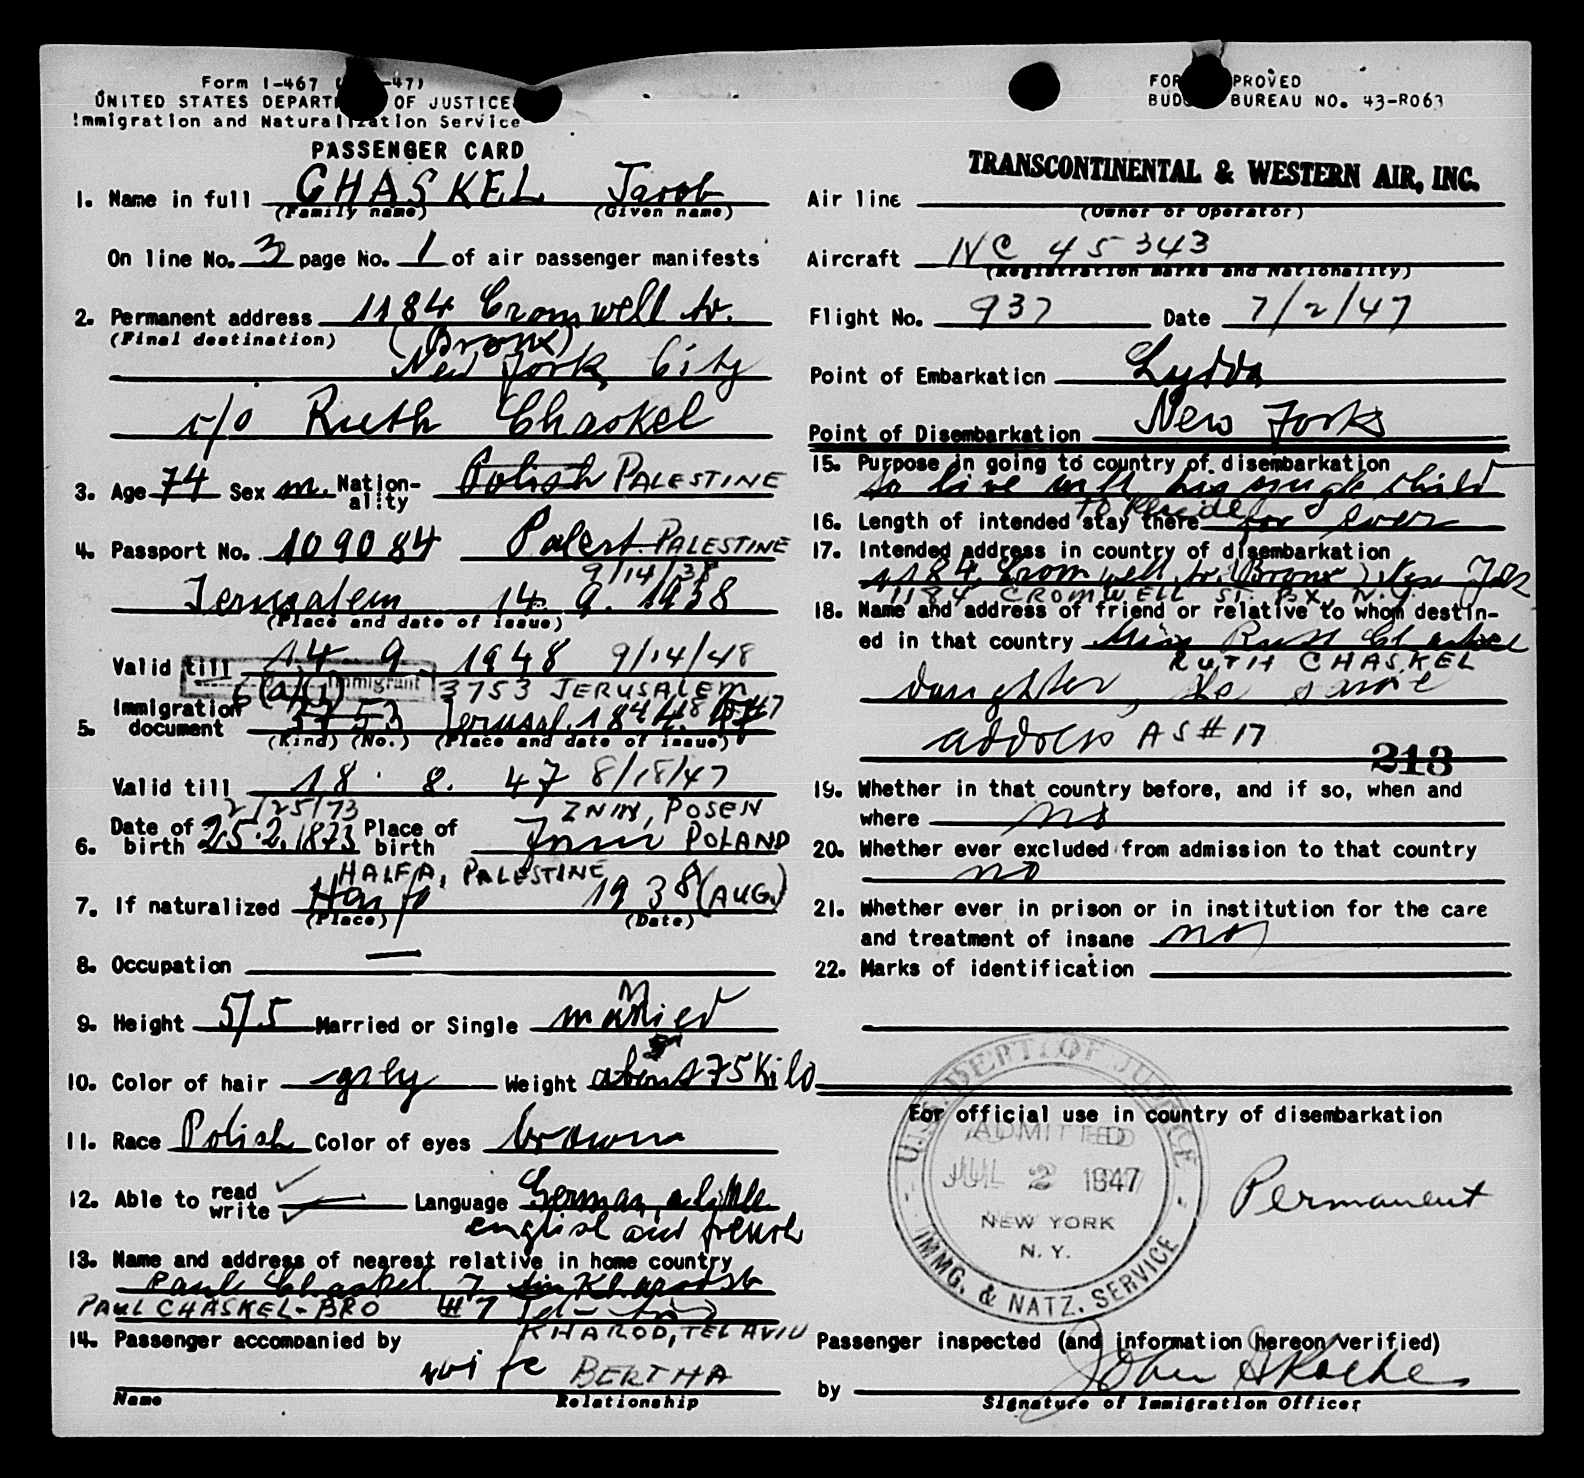 Form I-467 ( -47)
UNITED STATES DEPARTMENT OF JUSTICE
Immigration and Naturalization Service
PASSENGER CARD
1. Name in full CHASKEL Jacob
(Family name) (Given name)
On line No. 3 page No. 1 of air passenger manifests
2. Permanent address 1184 Cromwell Av.
(Final destination) (Bronx)
New York City
c/o Ruth Chaskel
3. Age 74 Sex m. Nation-ality Polish PALESTINE
4. Passport No. 109084 Palest. PALESTINE
9/14/38
Jerusalem 14. 9. 1938
(Place and date of issue)
Valid till 14 9 1948 9/14/48
6(a)(1) Immigrant 3753 JERUSALEM
5. Immigration document 3753 Jerusal. 18 4. 47
(Kind) (No.) (Place and date of issue)
Valid till 18. 8. 47 8/18/47
2/25/73 ZNIN, POSEN
6. Date of birth 25.2.1873 Place of birth POLAND
HAIFA, PALESTINE
7. If naturalized Haifa 1938 (AUG.)
(Place) (Date)
8. Occupation —
9. Height 5/5 Married or Single married M
10. Color of hair grey Weight about 75 Kilo
11. Race Polish Color of eyes brown
12. Able to read write Language German, a little
english and french
13. Name and address of nearest relative in home country
Paul Chaskel 7
PAUL CHASKEL - BRO #7
KHAROD, TEL AVIV
14. Passenger accompanied by
wife BERTHA
Name Relationship
FORM APPROVED
BUDGET BUREAU NO. 43-R063
TRANSCONTINENTAL & WESTERN AIR, INC.
Air line
(Owner or Operator)
Aircraft NC 45343
(Registration marks and Nationality)
Flight No. 937 Date 7/2/47
Point of Embarkation Lydda
Point of Disembarkation New York
15. Purpose in going to country of disembarkation
to live with his single child
TO RESIDE
16. Length of intended stay there for ever
17. Intended address in country of disembarkation
1184, Cromwell Av. (Bronx) New York
1184 CROMWELL ST. BX, N.Y.
18. Name and address of friend or relative to whom destin-
ed in that country Miss Ruth Chaskel
RUTH CHASKEL
daughter, the same
address AS #17
213
19. Whether in that country before, and if so, when and
where no
20. Whether ever excluded from admission to that country
no
21. Whether ever in prison or in institution for the care
and treatment of insane no
22. Marks of identification
For official use in country of disembarkation
U.S. DEPT. OF JUSTICE
ADMITTED
JUL 2 1947
NEW YORK
N. Y.
IMMG. & NATZ. SERVICE
Permanent
Passenger inspected (and information hereon verified)
by John
Signature of Immigration Officer